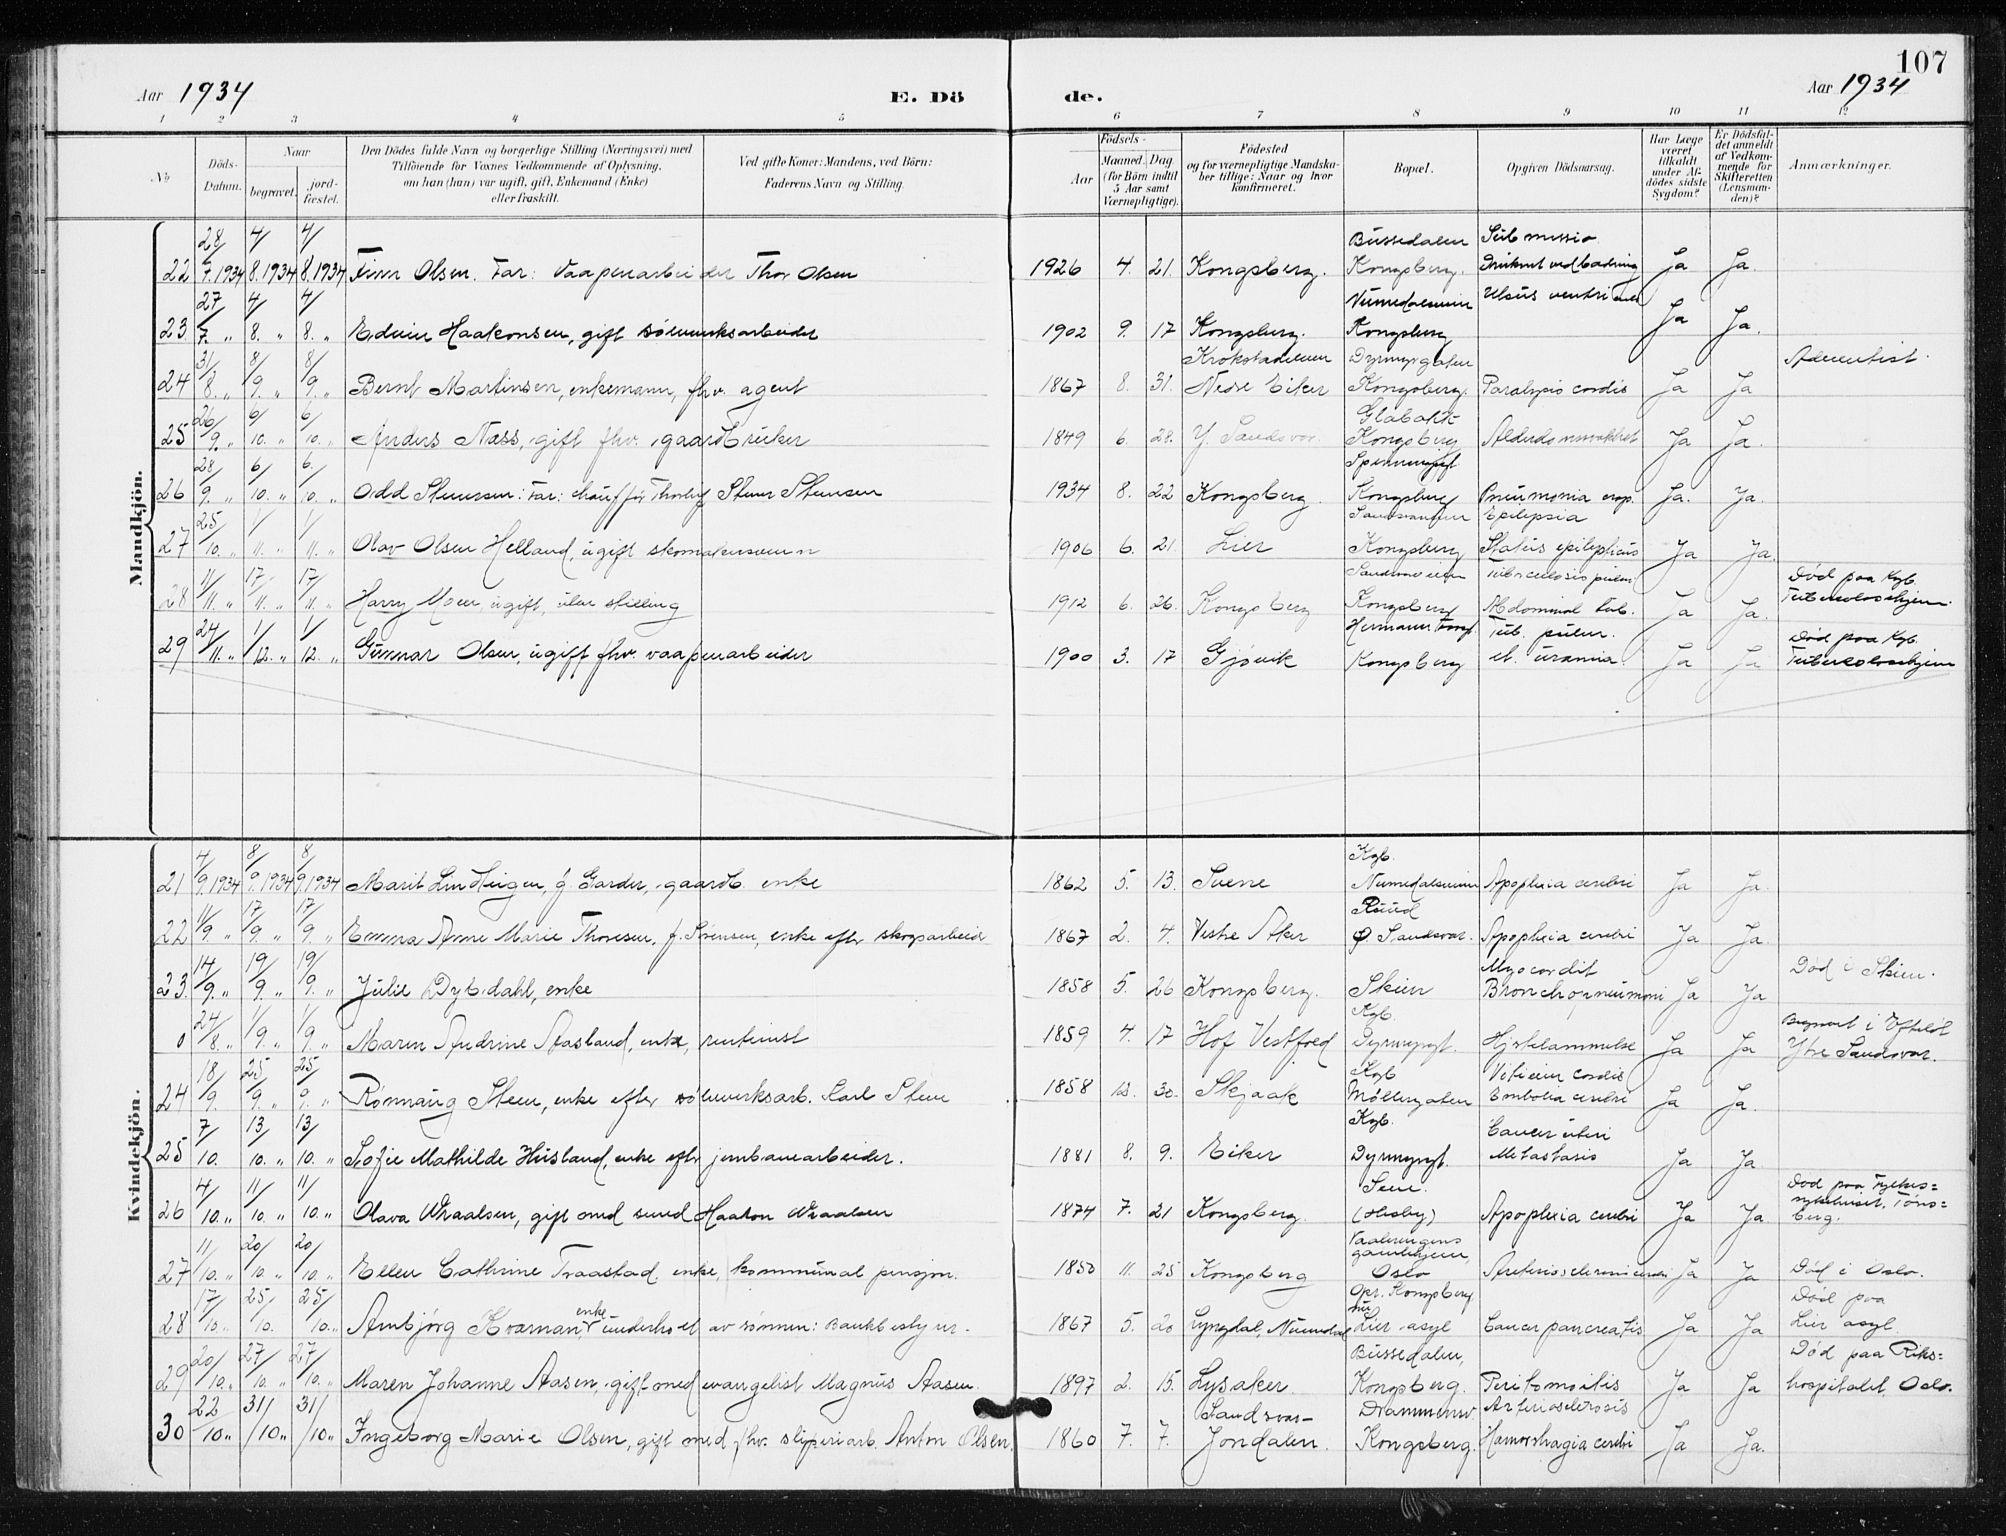 107
Aar 1934 E. Dö de. Aar 1934
1 2 3 4 5 6 7 8 9 10 11 12
No Döds-Datum. Naar begravet. jord-fæstet. Den Dödes fulde Navn og borgerlige Stilling (Næringsvei) med Tilföiende for Voxnes Vedkommende af Oplysning, om han (hun) var ugift, gift, Enkemand (Enke) eller fraskilt. Ved gifte Koner: Mandens, ved Börn: Faderens Navn og Stilling. Födsels- Aar Maaned. Dag (for Börn indtil 5 Aar samt Værnepligtige). Födested og for værnepligtige Mandskaber tillige: Naar og hvor konfirmeret. Bopæl. Opgiven Dödsaarsag. Har Læge været tilkaldt under Afdödes sidste Sygdom? Er Dödsfaldet anmeldt af Vedkommende for Skifteretten (Lensmanden)? Anmærkninger.
Mandkjön.
22 28/7. 1934 4/8. 1934 4/8. 1934 Finn Olsen. Far: Vaapenarbeider Thor Olsen 1926 4. 21. Kongsberg. Bussedalen Kongsberg. Submersio Druknet ved badning Ja Ja.
23. 27/7. " 4/8. " 4/8. " Edvin Haakonsen, gift sölvverksarbeider 1902 9. 17 Kongsberg. Numedalsveien Kongsberg Ulcus ventriculi Ja Ja.
24 31/8. " 8/9. " 8/9. " Bernt Martinsen, enkemann, fhv. agent 1867 8. 31. Krokstadelven Nedre Eiker Dyrmyrgaten Kongsberg. Paralysis cordis Ja Ja Adventist.
25 26/9. " 6/10. " 6/10. " Anders Næss, gift fhv. gaardbruker 1849 6. 28. Y. Sandsvær. Glabakk Kongsberg Ja Ja.
26 28/9. " 6/10. " 6/10. " Odd Steensen: Far: chauffør Thorleif Steensen 1934 8. 22 Kongsberg. Kongsberg Pneumonia crup. Ja. Ja.
27 25/10. " 1/11. " 1/11. " Olav Olsen Helland, ugift skomakersvenn 1906 6. 21. Lier Kongsberg Epilepsia Status epilepticus Ja Ja.
28 11/11. " 17/11. " 17/11. " Harry Moen ugift, uten stilling 1912 6. 26. Kongsberg Sandsværveien Kongsberg Tuberculosis pulm. Abdominal tub. Ja Ja. Död paa Kgb. Tuberkulosehjem.
29 24/11. " 1/12. " 1/12. " Gunnar Olsen, ugift fhv. vaapenarbeider 1900 3. 17 Gjøvik Kongsberg Tub. pulm. et. uræmia. Ja Ja Död paa Kgb. Tuberkulosehjem
Kvindekjön.
21 4/9. 1934 8/9. 1934 8/9. 1934 Marit Lindteigen, f. Garder, gaardb. enke 1862 5. 13. Svene Kgb. Numedalsveien Apoplexia cerebri Ja Ja.
22 11/9. " 17/9. " 17/9. " Emma Anne Marie Thoresen, f. Svensen, enke efter skogsarbeid 1867 2. 4. Vestre Aker Ruud Ø. Sandsvær. Apoplexia cerebri Ja Ja.
23. 14/9. " 19/9. " 19/9. " Julie Dybdahl, enke 1858 5. 26 Kongsberg. Skien Myocardit Bronchopneumoni Ja Ja Död i Skien.
0 24/8. " 1/9. " 1/9. " Maren Andrine Aasland, enke, rentenist 1859 4. 17 Hof Vestfold Kgb. Dyrmyrgt. Hjertelammelse Ja Ja Begravet i Efteløt Ytre Sandsvær.
24 18/9. 25/9. " 25/9. " Rønnaug Steen, enke efter sølvverksarb. Karl Steen 1858 12. 30. Skjaak Kgb Møllergaten Vitium cordis Embolia cerebri Ja Ja.
25 7/10. 13/10. " 13/10. " Sofie Mathilde Husland, enke eftr jernbanearbeider. 1881 8. 9. Eiker Kgb. Dyrmyrgt. Cancer uteri Metastasis Ja Ja.
26 4/10. " 11/10. " 11/10. " Olava Wraalsen, gift med smed Haakon Wraalsen 1874 7. 21 Kongsberg. Sem. Apoplexia cerebri Ja Ja. Död paa Fylkes=sykehuset, Töns=berg.
27 11/10. " 20/10. " 20/10. " Ellen Cathrine Traastad, enke, kommunal pensjon. 1850 11. 25 Kongsberg Vaalerengens gamlehjem, Oslo Arteriosclerosis cerebri Ja Ja Död i Oslo.
28 17/10. " 25/10. 25/10. " Ambjörg Kvarnan enke underholdt av sønnen: Bankbestyrer. 1867 5. 20 Lyngdal, Numedal Opr. Kongsberg nu Lier asyl Cancer pancreatis Ja Ja Död paa Lier asyl
29 20/10. " 27/10. " 27/10. " Maren Johanne Aasen, gift med evangelist Magnus Aasen. 1897 2. 15. Lysaker. Bussedalen, Kongsberg. Peritonitis Ja Ja Död paa Riks=hospitalet Oslo.
30 22/10 " 31/10 " 31/10 " Ingeborg Marie Olsen, gift med fhv. sliperiarb. Anton Olsen. 1860 7. 7. Sandsvær- Jondalen. Drammensv. Kongsberg. Arteriosclerosis Hæmorrhagia cerebri Ja Ja.